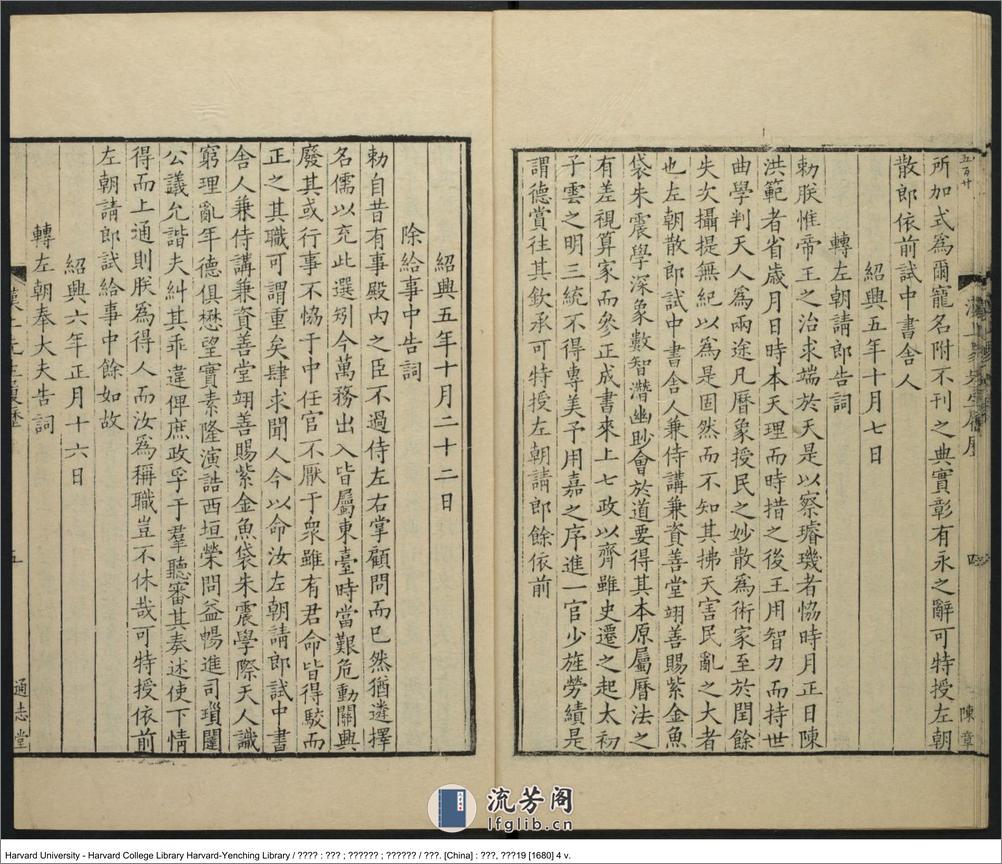 五百廿
所加式爲爾寵名附不刊之典實彰有永之辭可特授左朝
散郎依前試中書舍人
紹興五年十月七日
轉左朝請郎告詞
勑朕惟帝王之治求端於天是以察璿璣者恊時月正日陳
洪範者省歲月日時本天理而時措之後王用智力而持世
曲學判天人爲兩途凡曆象授民之妙散爲術家至於閏餘
失次攝提無紀以爲是固然而不知其拂天害民亂之大者
也左朝散郎試中書舍人兼侍講兼資善堂翊善賜紫金魚
袋朱震學深象數智潛幽眇會於道要得其本原屬曆法之
有差視算家而參正成書來上七政以齊雖史遷之起太初
子雲之明三統不得專美予用嘉之序進一官少旌勞績是
謂德賞往其欽承可特授左朝請郎餘依前
陳章
紹興五年十月二十二日
除給事中告詞
勑自昔有事殿內之臣不過侍左右掌顧問而已然猶遴擇
名儒以充此選矧今萬務出入皆屬東臺時當艱危動關興
廢其或行事不恊于中任官不厭于衆雖有君命皆得駮而
正之其職可謂重矣肆求聞人今以命汝左朝請郎試中書
舍人兼侍講兼資善堂翊善賜紫金魚袋朱震學際天人識
窮理亂年德俱懋望實素隆演誥西垣榮問益暢進司瑣闥
公議允諧夫糾其乖違俾庶政孚于羣聽審其奏述使下情
得而上通則朕爲得人而汝爲稱職豈不休哉可特授依前
左朝請郎試給事中餘如故
紹興六年正月十六日
轉左朝奉大夫告詞
通志堂
流芳阁
lfglib.cn
Harvard University - Harvard College Library Harvard-Yenching Library / ???? : ??? ; ?????? ; ?????? / ???. [China] : ???, ???19 [1680] 4 v.